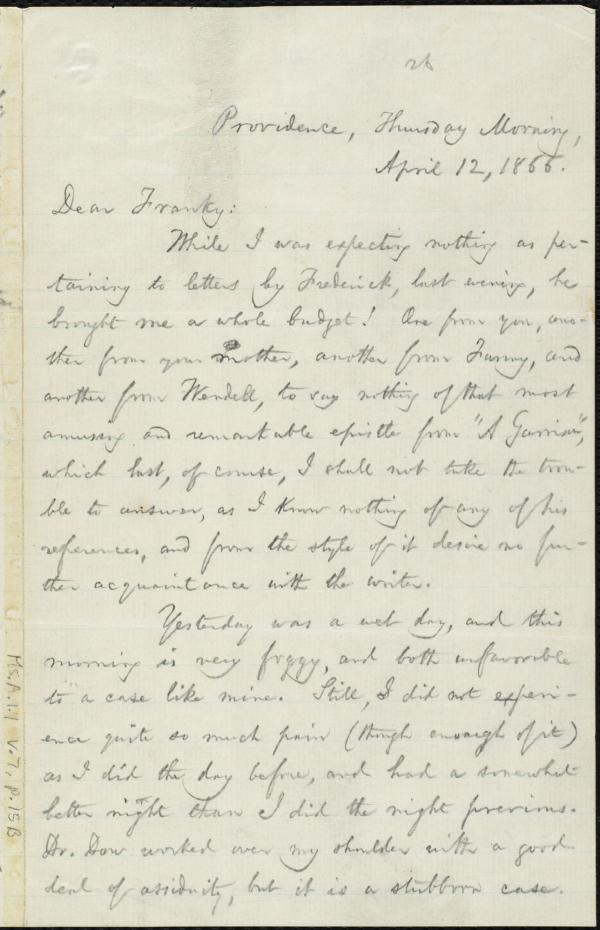 Providence, Thursday Morning,
April 12, 1866.
Dear Franky:
While I was expecting nothing as per-
taining to letters by Frederick, last evening, he
brought me a whole budget! One from you, ano-
ther from your mother, another from Fanny, and
another from Wendell, to say nothing of that most
amusing and remarkable epistle from "A Garrison",
which last, of course, I shall not take the trou-
ble to answer, as I know nothing of any of his
references, and from the style of it desire no fur-
ther acquaintance with the writer.
Yesterday was a wet day, and this
morning is very foggy, and both unfavorable
to a case like mine. Still, I did not experi-
ence quite so much pain (though enough of it)
as I did the day before, and had a somewhat
better night than I did the night previous.
Dr. Dow worked over my shoulder with a good
deal of assiduity, but it is a stubborn case.
Ms.A.1.1 V.7, p.15B